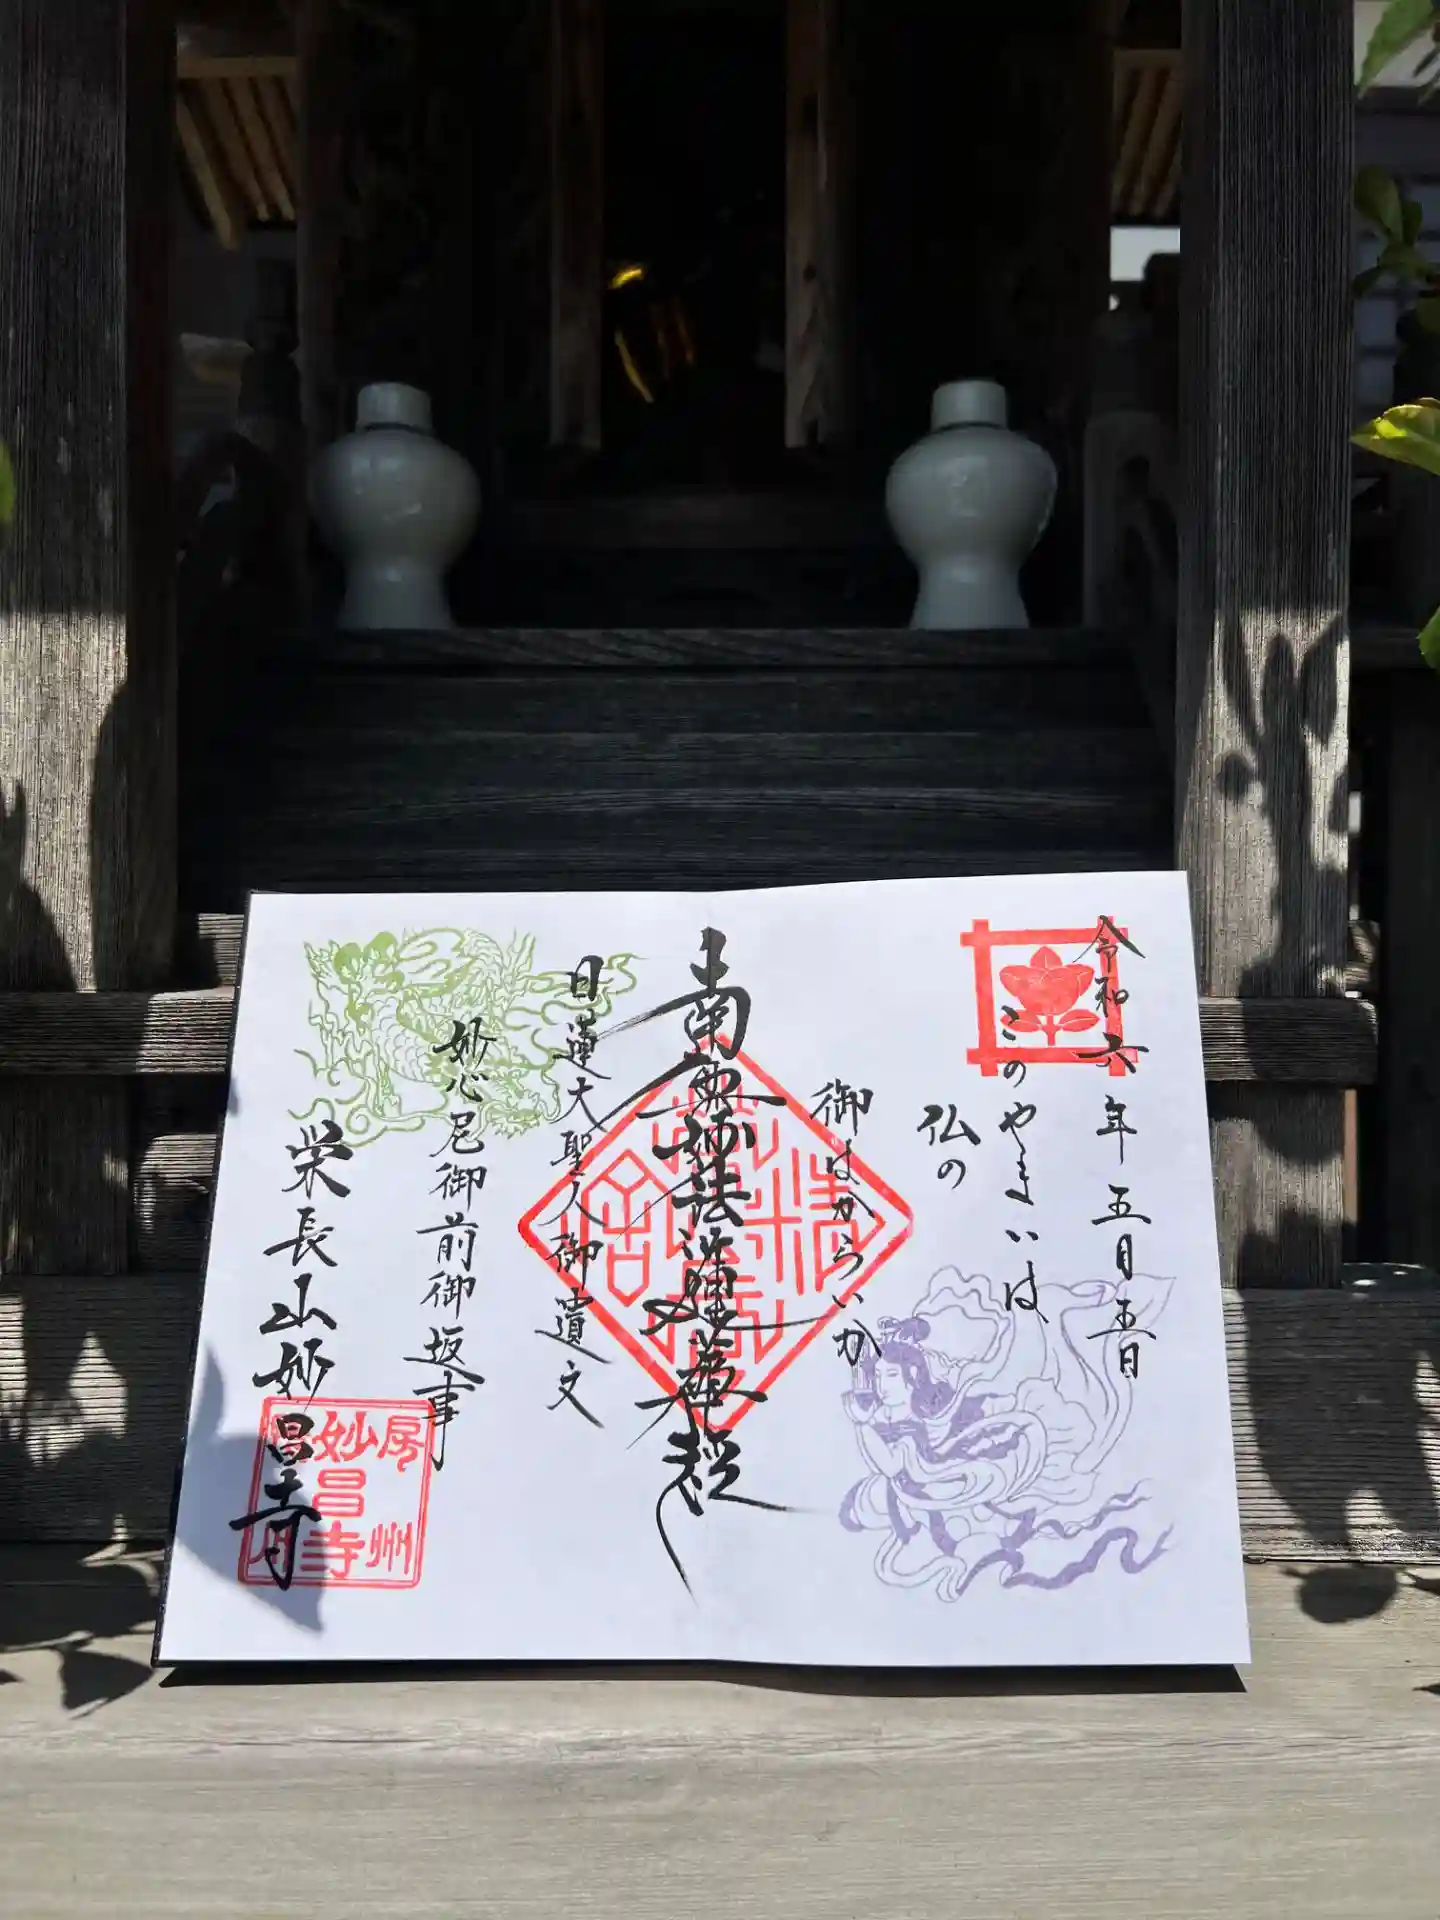 令和六年五月五日
このやまいは
仏の
御はからいか
南無妙法蓮華経
日蓮大聖人御遺文
妙心尼御前御返事
栄長山妙昌寺
房州
妙昌寺